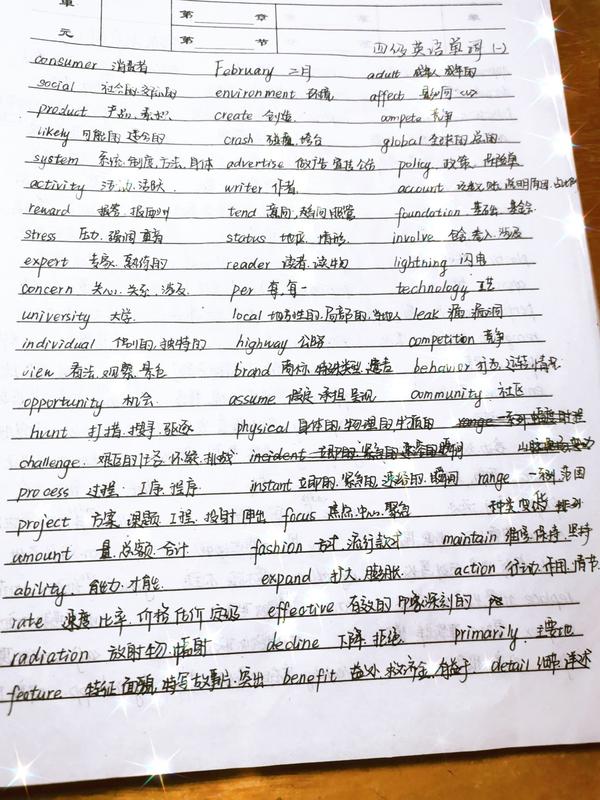 单 第 章 章
元 第 节
四级英语单词(一)
consumer 消费者 February 二月 adult 成年人 成年的
social 社会的,交际的 environment 环境 affect 影响
product 产品, create 创造 compete 竞争
likely 可能的 适合的 crash 碰撞, global 全球的 总的
system 系统.制度.方法.身体 advertise 做广告 宣传公告 policy. 政策.
activity 活动.活跃 writer 作者 account
reward 报答. tend 趋向. foundation 基础. 基金.
stress 压力.强调 重音 status 地位. 情形. involve 包含 卷入.涉及
expert 专家. 熟练的 reader 读者.读物 lightning 闪电
concern 关心.关系.涉及 per 每,每一 technology 工艺
university 大学 local 地方性的.局部的. leak 漏. 漏洞
individual 个别的,独特的 highway 公路 competition 竞争
view 看法.观察.景色 brand 商标. behavior 行为.运转情况
opportunity 机会 assume 假定 承担 呈现 community. 社区
hunt 打猎.搜寻.驱逐 physical 身体的,物理的 range
challenge. 艰巨的任务.怀疑.挑战 incident
process 过程. 工序.程序 instant 立即的.紧急的. 瞬间 range 一系列.范围
project 方案.课题.工程.投射 focus 焦点.中心.聚焦 种类
amount 量.总额.合计 fashion 方式.流行款式 maintain 维修.保持.坚持
ability. 能力.才能. expand 扩大.膨胀. action 行动.作用.情节
rate 速度.比率.价格 估价 定级 effective 有效的 印象深刻的
radiation 放射物.辐射 decline 下降.拒绝 primarily. 主要地
feature 特征 面貌.特写 故事片.突出 benefit 益处.救济金.有益于. detail 细节.详述